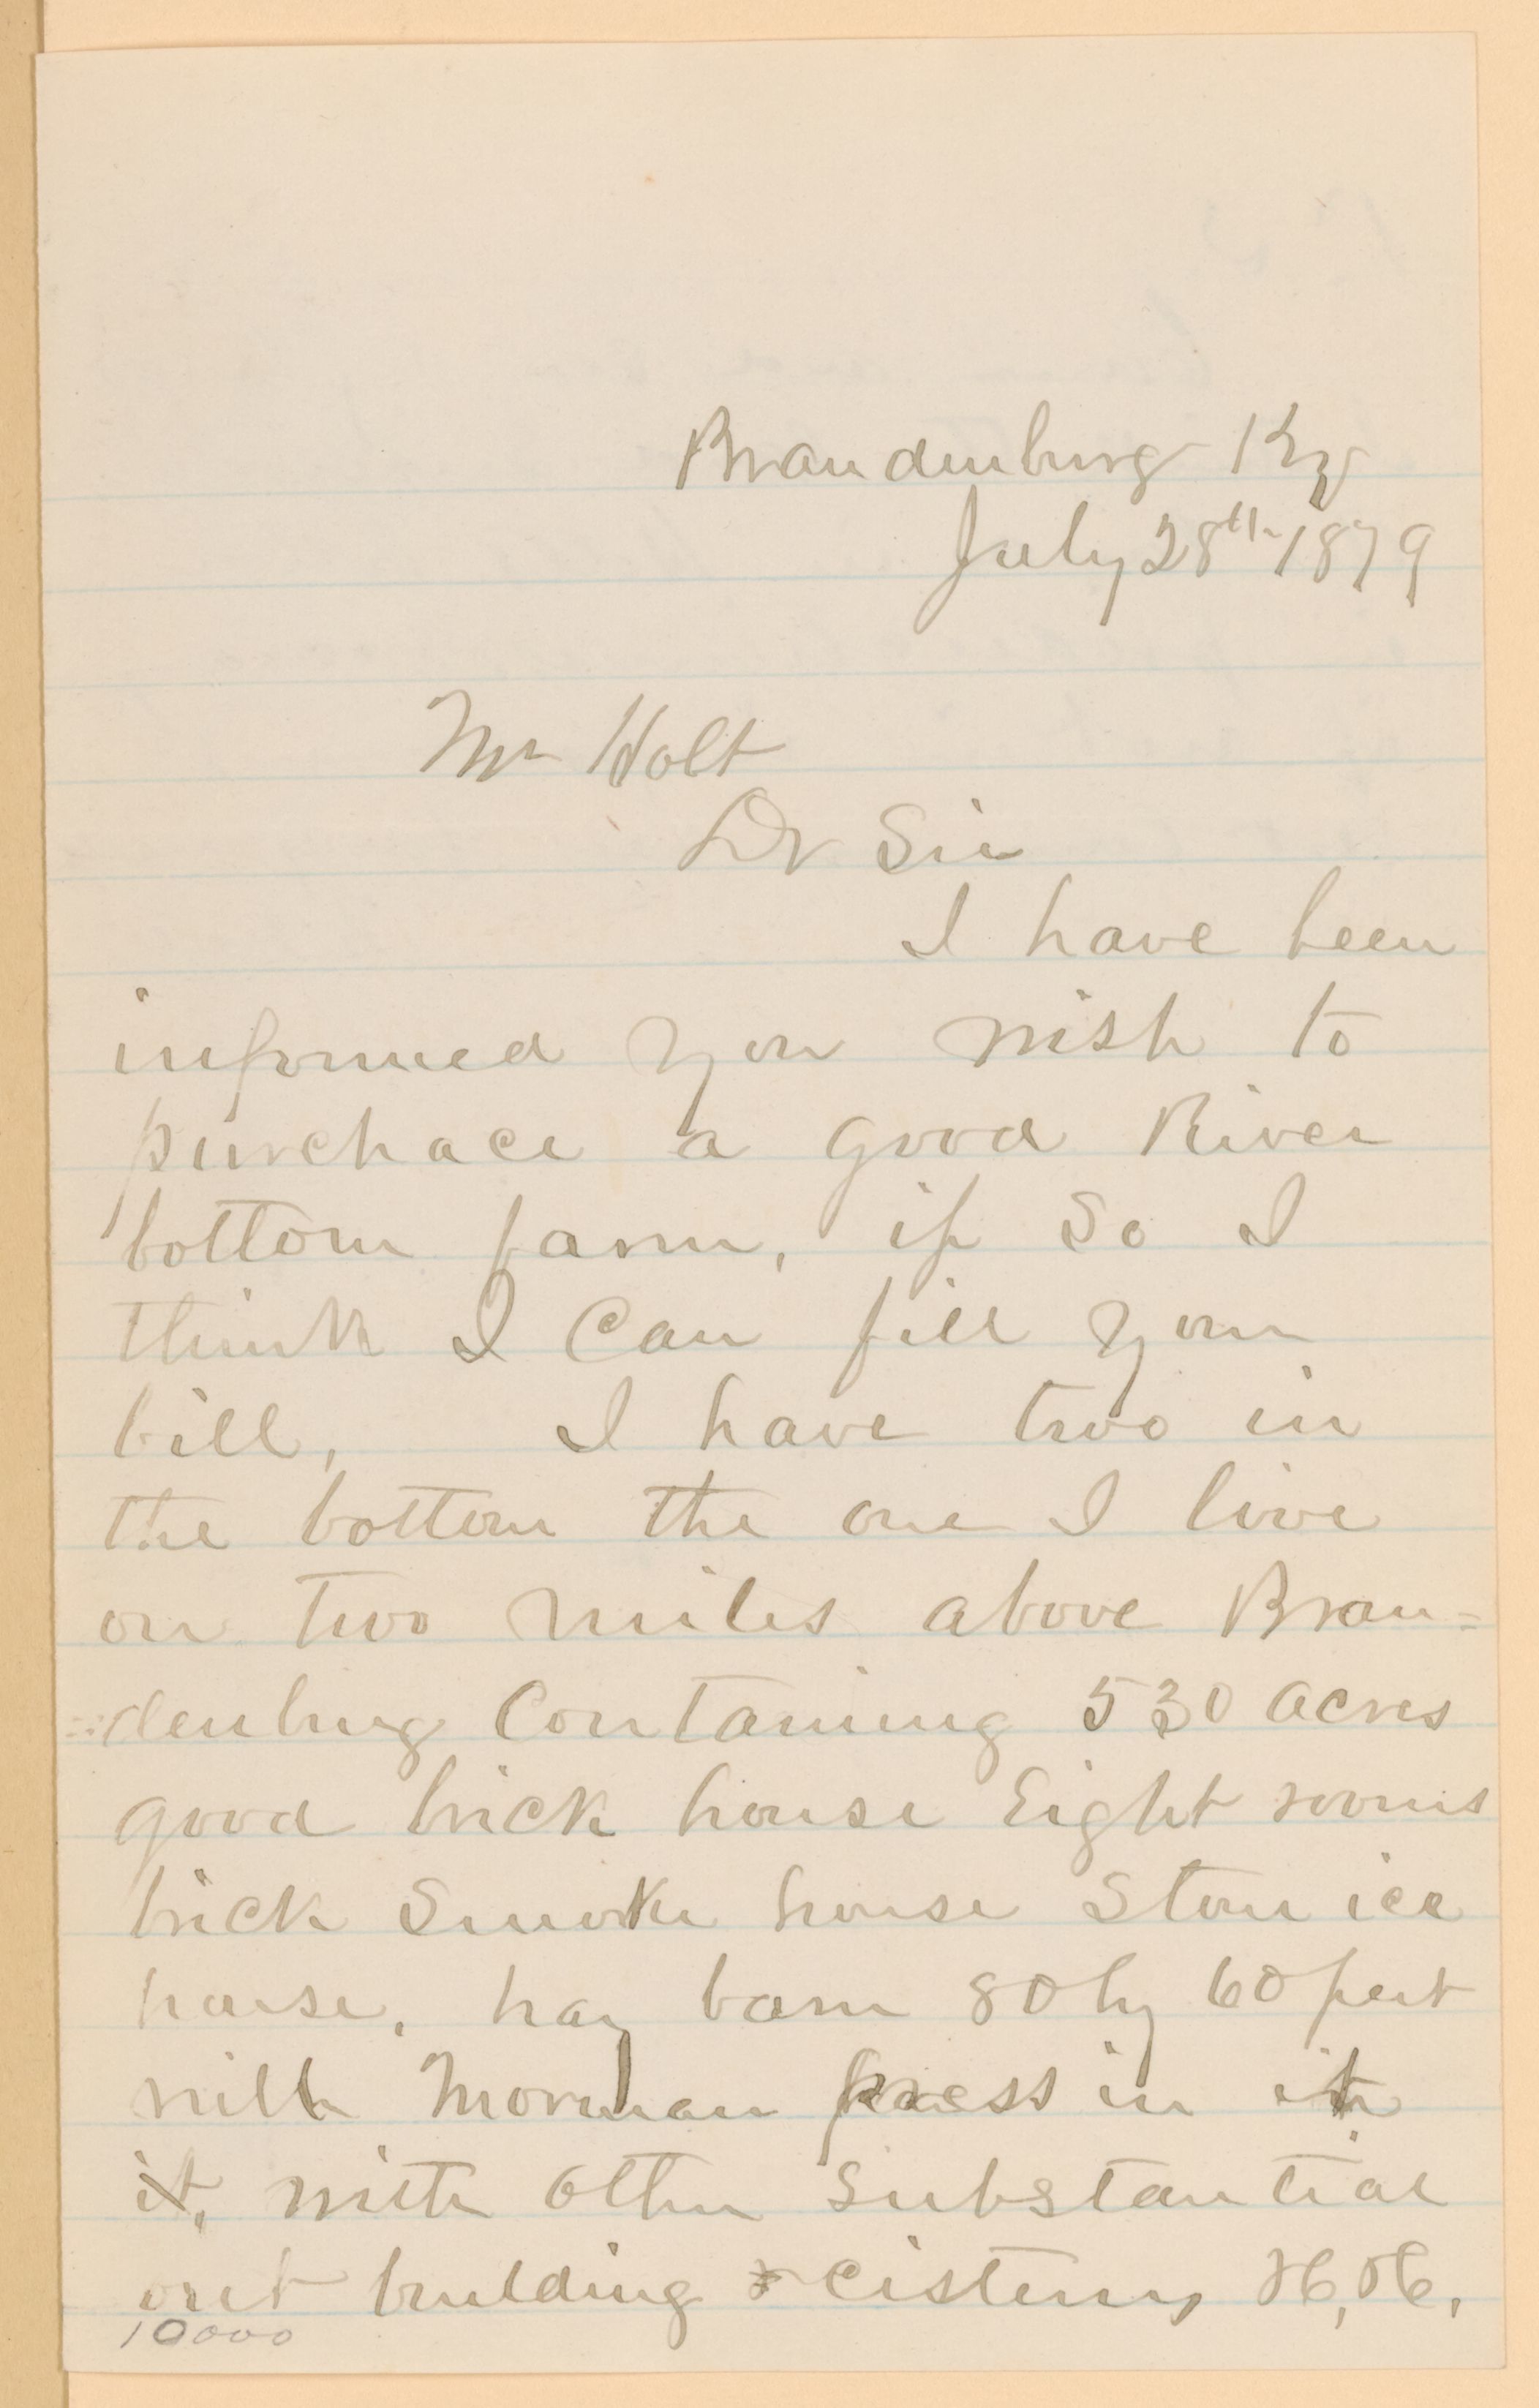 Brandenburg Ky
July 28th 1879
Mr Holt
Dr Sir
I have been
informed you wish to
purchace a good River
bottom farm, if so I
think I can fill your
bill, I have two in
the bottom the one I live
on two miles above Bran=
=denburg Contaning 530 acres
good brick house Eight rooms
brick Smoke house Stone ice
house, hay barn 80 by 60 feet
with Morman press in it
it, with other substantial
out building & cisterns &c, &c,
10000